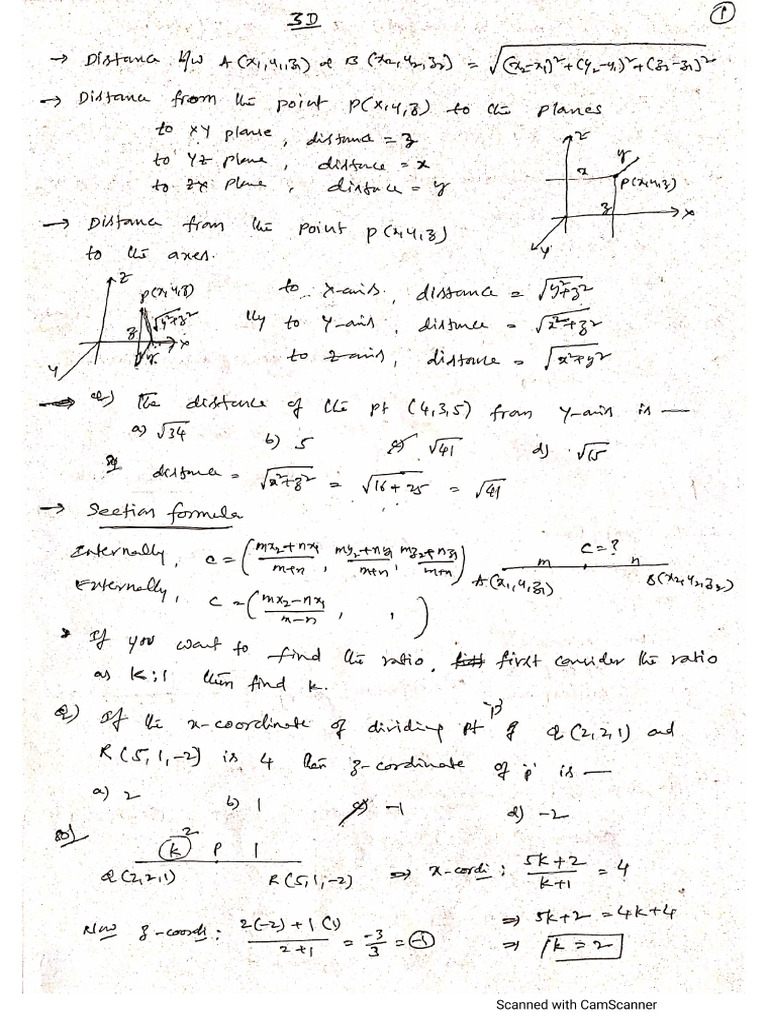 3D
①
→ Distance b/w A(x₁,y₁,z₁) & B(x₂,y₂,z₂) = √((x₂-x₁)²+(y₂-y₁)²+(z₂-z₁)²)
→ Distance from the point P(x,y,z) to the planes
to XY plane, distance = z
to YZ plane, distance = x
to ZX plane, distance = y
z
x
y
P(x,y,z)
z
x
y
→ Distance from the point P(x,y,z)
to the axes.
z
P(x,y,z)
z
√y²+z²
x
y
y
to x-axis, distance = √y²+z²
lly to y-axis, distance = √x²+z²
to z-axis, distance = √x²+y²
→ Q) The distance of the pt (4,3,5) from y-axis is —
a) √34 b) 5 c) √41 d) √15
distance = √x²+z² = √16+25 = √41
→ Section formula
Internally, c = ((mx₂+nx₁)/(m+n), (my₂+ny₁)/(m+n), (mz₂+nz₁)/(m+n))
Externally, c = ((mx₂-nx₁)/(m-n), , )
c=?
m n
A(x₁,y₁,z₁) B(x₂,y₂,z₂)
* If you want to find the ratio, first consider the ratio
as k:1 then find k.
Q) If the x-coordinate of dividing pt 'P' of Q(2,2,1) and
R(5,1,-2) is 4 then z-coordinate of 'P' is —
a) 2 b) 1 c) -1 d) -2
Sol
k 2 P 1
Q(2,2,1) R(5,1,-2) ⇒ x-cordi: (5k+2)/(k+1) = 4
⇒ 5k+2 = 4k+4
⇒ k = 2
Now z-coordi: (2(-2)+1(1))/(2+1) = -3/3 = -1
Scanned with CamScanner